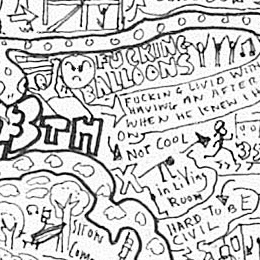 FUCKING
BALLOONS
FUCKING LIVID WITH
HAVING AN AFTER
WHEN HE KNEW I H
ON
NOT COOL
8TH
X
in Living
ROOM
HARD TO BE
CIVIL
SIT ON